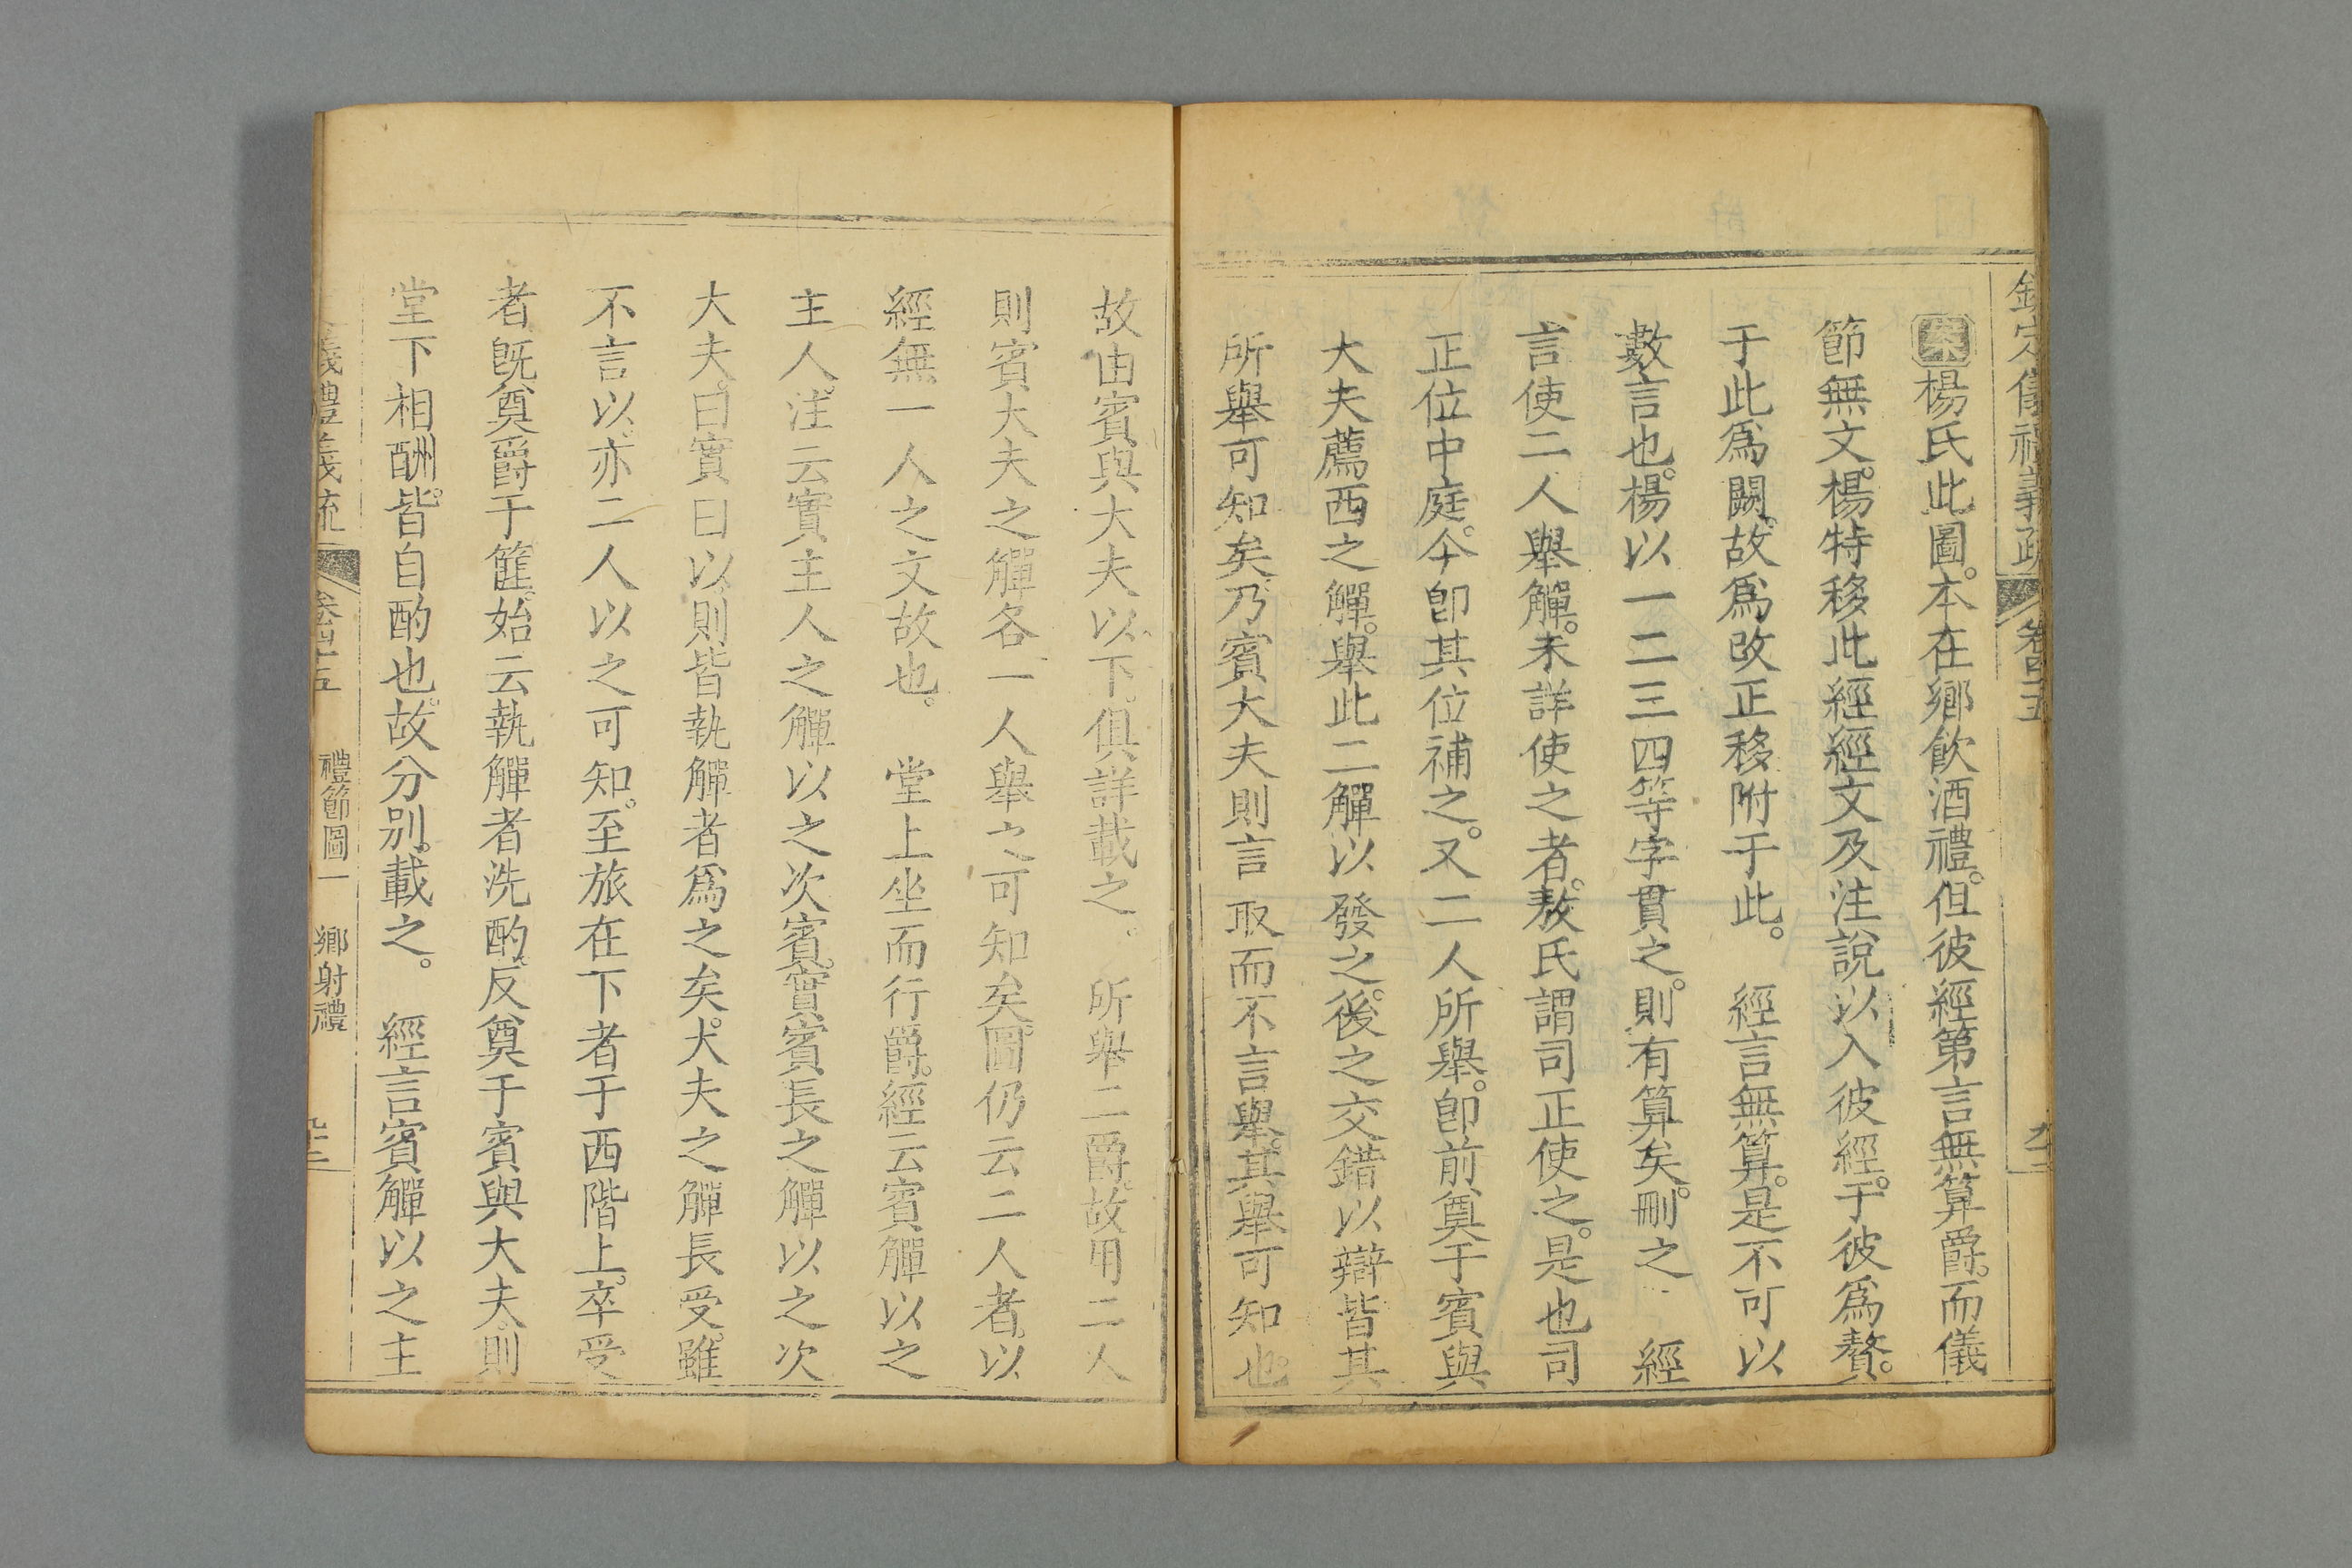 欽定儀禮義疏 卷四十五
案楊氏此圖。本在鄉飲酒禮。但彼經第言無算爵。而儀
節無文。楊特移此經經文及注說以入彼經。于彼爲贅。
于此爲闕。故爲改正移附于此。 經言無算。是不可以
數言也。楊以一二三四等字貫之。則有算矣。刪之 經
言使二人舉觶。未詳使之者。敖氏謂司正使之。是也司
正位中庭。今卽其位補之。又二人所舉。卽前奠于賓與
大夫薦西之觶。舉此二觶以發之。後之交錯以辯皆其
所舉可知矣。乃賓大夫則言取而不言舉。其舉可知也。
故由賓與大夫以下。俱詳載之。 所舉二爵。故用二人
則賓大夫之觶各一人舉之可知矣。圖仍云二人者。以
經無一人之文故也。 堂上坐而行爵。經云賓觶以之
主人。注云實主人之觶以之次賓。實賓長之觶以之次
大夫。曰實曰以。則皆執觶者爲之矣。大夫之觶長受。雖
不言以。亦二人以之可知。至旅在下者于西階上。卒受
者旣奠爵于篚。始云執觶者洗酌。反奠于賓與大夫。則
堂下相酬。皆自酌也。故分別載之。 經言賓觶以之主
儀禮義疏 卷四十五 禮節圖一 鄉射禮